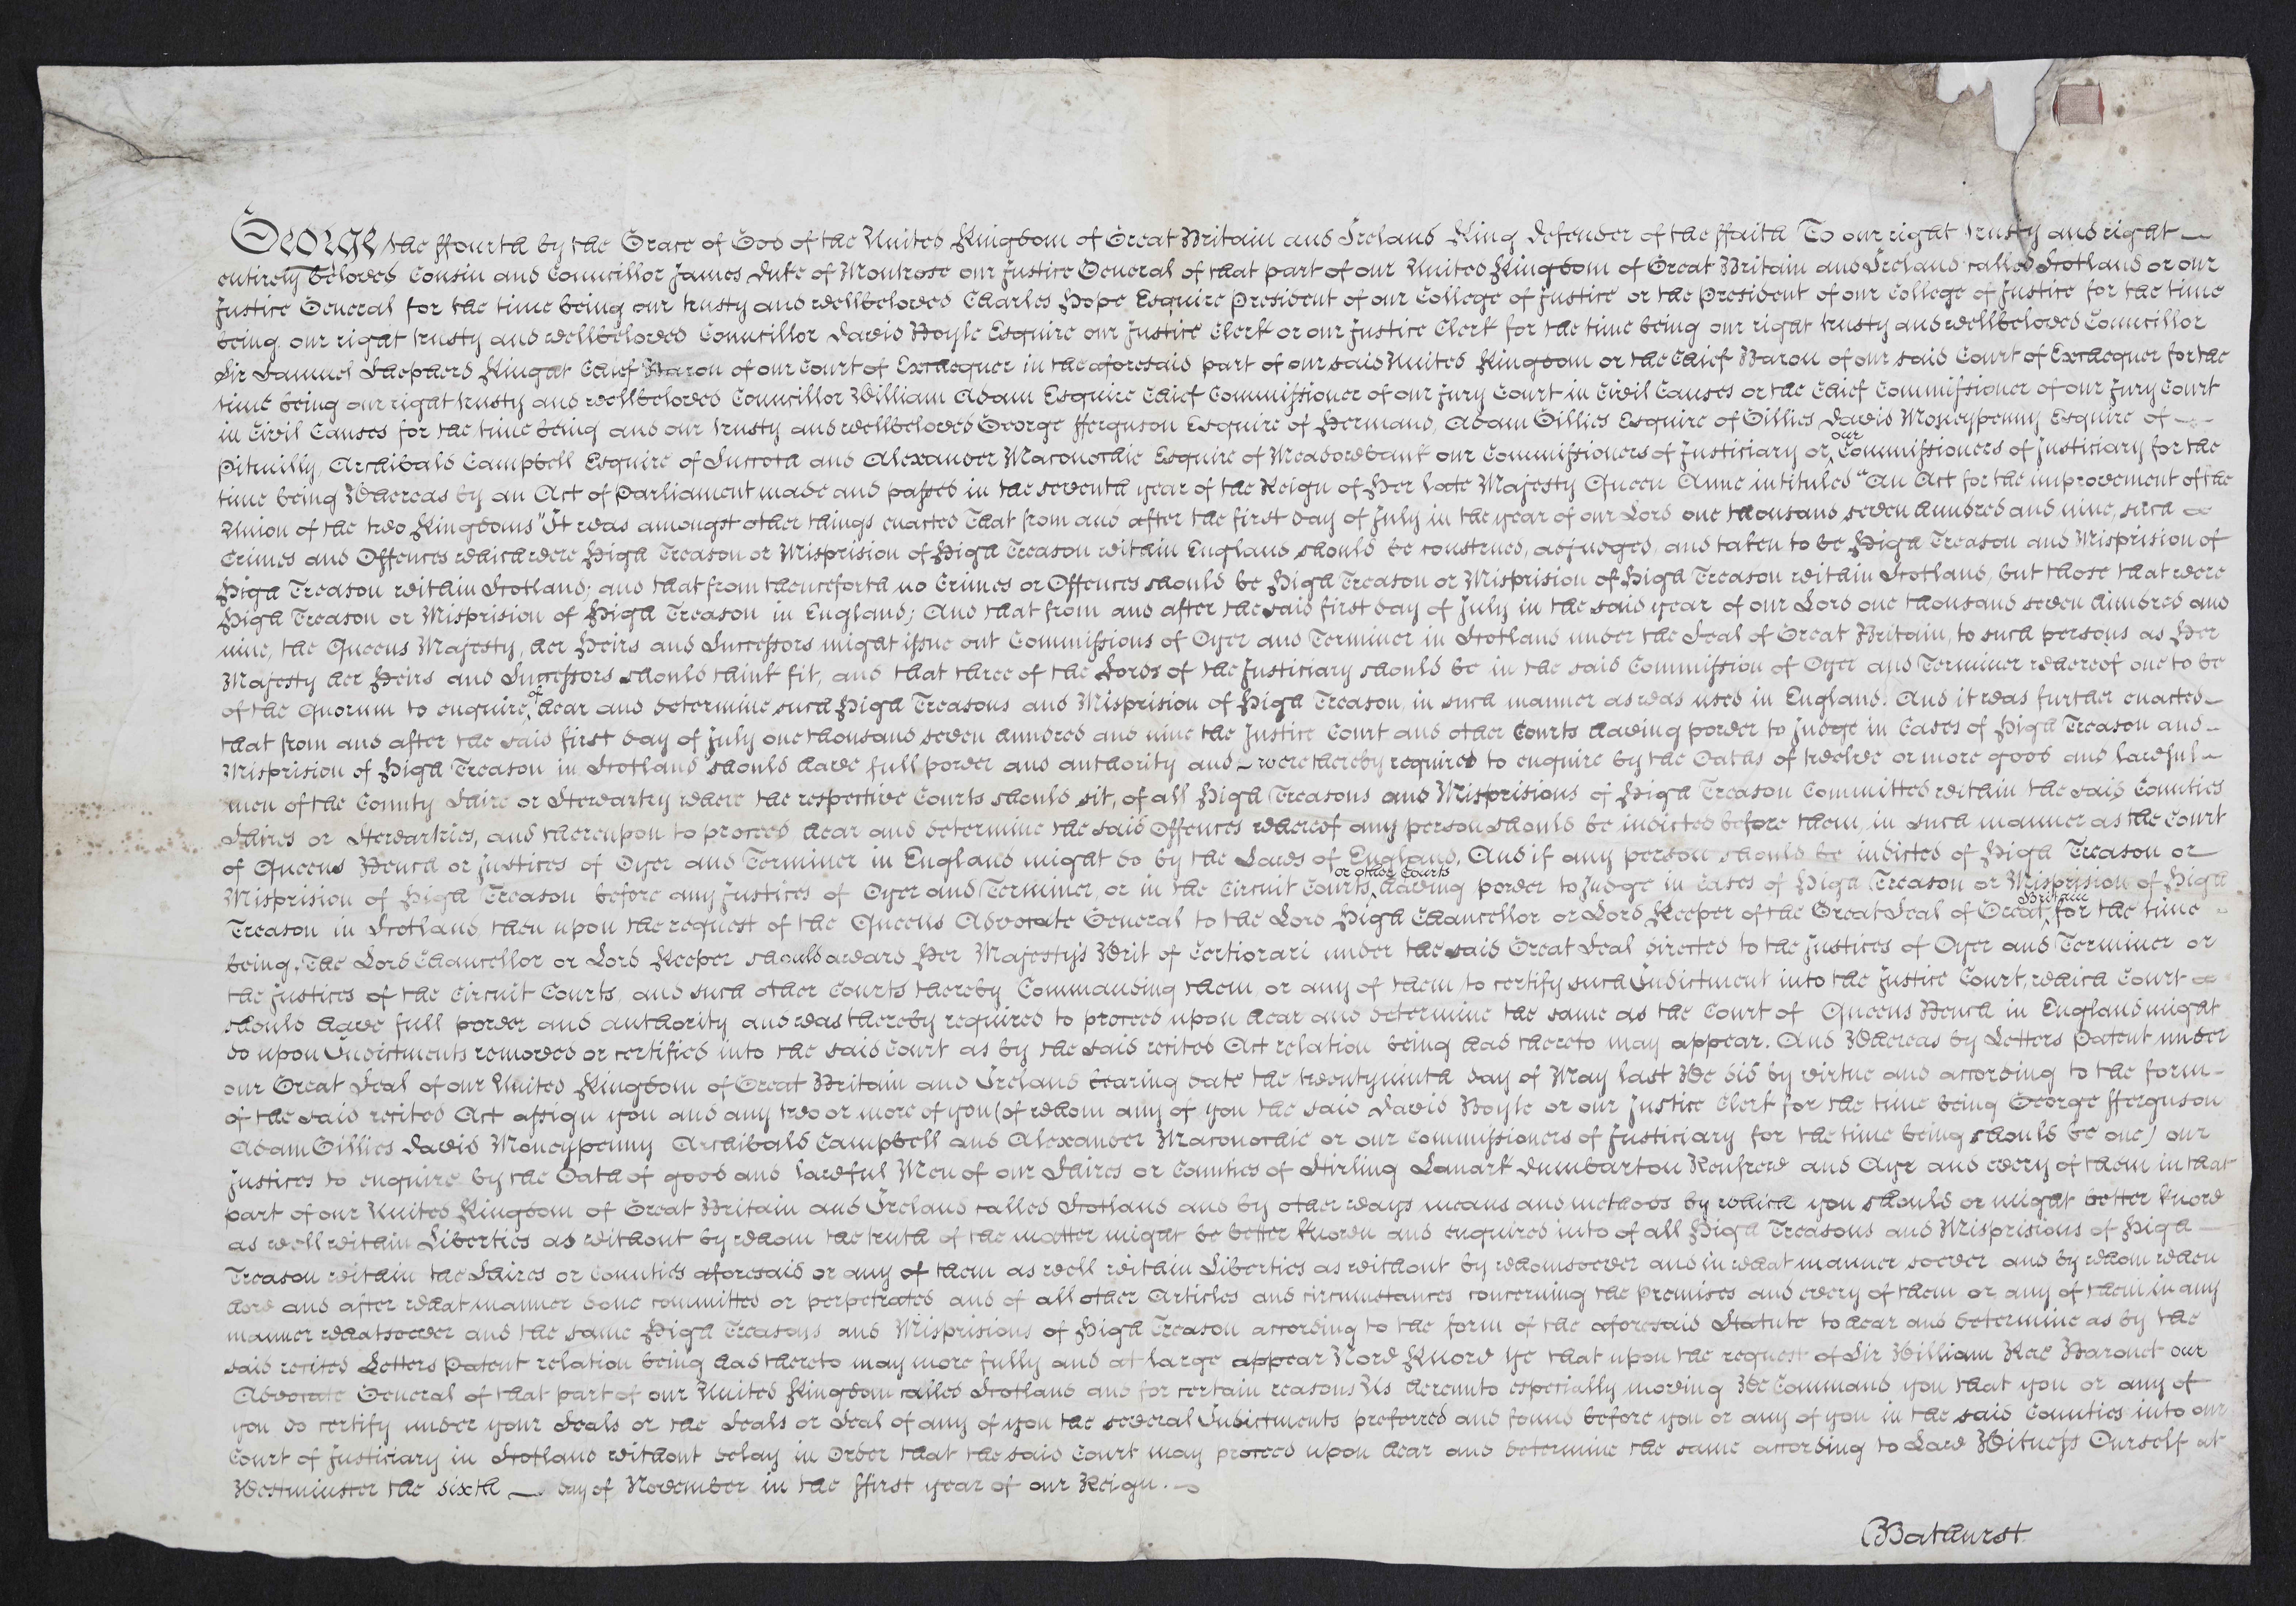 George the ffourth by the Grace of God of the United Kingdom of Great Britain and Ireland King Defender of the ffaith To our right trusty and right
entirely beloved Cousin and Councillor James Duke of Montrose our Justice General of that part of our United Kingdom of Great Britain and Ireland called Scotland or our
Justice General for the time being our trusty and wellbeloved Charles Hope Esquire President of our College of Justice or the President of our College of Justice for the time
being our right trusty and wellbeloved Councillor David Boyle Esquire our Justice Clerk or our Justice Clerk for the time being our right trusty and wellbeloved Councillor
Sir Samuel Shepherd Knight Chief Baron of our Court of Exchequer in the aforesaid part of our said United Kingdom or the Chief Baron of our said Court of Exchequer for the
time being our right trusty and wellbeloved Councillor William Adam Esquire Chief Commissioner of our Jury Court in Civil Causes or the Chief Commissioner of our Jury Court
in Civil Causes for the time being and our trusty and wellbeloved George fferguson Esquire of Hermand, Adam Gillies Esquire of Gillies David Moneypenny Esquire of
Pitmilly, Archibald Campbell Esquire of Succoth and Alexander Maconochie Esquire of Meadowbank our Commissioners of Justiciary or our Commissioners of Justiciary for the
time being Whereas by an Act of Parliament made and passed in the seventh year of the Reign of Her late Majesty Queen Anne intituled "An Act for the improvement of the
Union of the two Kingdoms" It was amongst other things enacted That from and after the first day of July in the year of our Lord one thousand seven hundred and nine, such
Crimes and Offences which were High Treason or Misprision of High Treason within England should be construed, adjudged, and taken to be High Treason and Misprision of
High Treason within Scotland; and that from thenceforth no Crimes or Offences should be High Treason or Misprision of High Treason within Scotland, but those that were
High Treason or Misprision of High Treason in England; And that from and after the said first day of July in the said year of our Lord one thousand seven hundred and
nine, the Queens Majesty, her Heirs and Successors might issue out Commissions of Oyer and Terminer in Scotland under the Seal of Great Britain, to such persons as Her
Majesty her Heirs and Successors should think fit, and that three of the Lords of the Justiciary should be in the said Commission of Oyer and Terminer whereof one to be
of the Quorum to enquire, of hear and determine such High Treasons and Misprision of High Treason, in such manner as was used in England. And it was further enacted
that from and after the said first day of July one thousand seven hundred and nine the Justice Court and other Courts having power to Judge in Cases of High Treason and
Misprision of High Treason in Scotland should have full power and authority and were thereby required to enquire by the Oaths of twelve or more good and lawful
men of the County Shire or Stewartry where the respective Courts should sit, of all High Treasons and Misprisions of High Treason Committed within the said Counties
Shires or Stewartries, and thereupon to proceed hear and determine the said Offences whereof any person should be indicted before them, in such manner as the Court
of Queens Bench or Justices of Oyer and Terminer in England might do by the Laws of England. And if any person should be indicted of High Treason or
Misprision of High Treason before any Justices of Oyer and Terminer, or in the Circuit Courts, or other Courts having power to Judge in Cases of High Treason or Misprision of High
Treason in Scotland, then upon the request of the Queens Advocate General to the Lord High Chancellor or Lord Keeper of the Great Seal of Great Britain for the time
being, The Lord Chancellor or Lord Keeper should award Her Majestys Writ of Certiorari under the said Great Seal directed to the Justices of Oyer and Terminer or
the Justices of the Circuit Courts, and such other Courts thereby Commanding them, or any of them to certify such Indictment into the Justice Court, which Court
should have full power and authority and was thereby required to proceed upon hear and determine the same as the Court of Queens Bench in England might
do upon Indictments removed or certified into the said Court as by the said recited Act relation being had thereto may appear. And Whereas by Letters Patent under
our Great Seal of our United Kingdom of Great Britain and Ireland bearing date the twentyninth day of May last We did by virtue and according to the form
of the said recited Act assign you and any two or more of you (of whom any of you the said David Boyle or our Justice Clerk for the time being George fferguson
Adam Gillies David Moneypenny Archibald Campbell and Alexander Maconochie or our Commissioners of Justiciary for the time being should be one) our
Justices to enquire by the Oath of good and lawful Men of our Shires or Counties of Stirling Lanark Dumbarton Renfrew and Ayr and every of them in that
part of our United Kingdom of Great Britain and Ireland called Scotland and by other ways means and methods by which you should or might better know
as well within Liberties as without by whom the truth of the matter might be better known and enquired into of all High Treasons and Misprisions of High
Treason within the Shires or Counties aforesaid or any of them as well within Liberties as without by whomsoever and in what manner soever and by whom when
how and after what manner done committed or perpetrated and of all other Articles and circumstances concerning the premises and every of them or any of them in any
manner whatsoever and the same High Treasons and Misprisions of High Treason according to the form of the aforesaid Statute to hear and determine as by the
said recited Letters Patent relation being had thereto may more fully and at large appear Now Know Ye that upon the request of Sir William Rae Baronet our
Advocate General of that part of our United Kingdom called Scotland and for certain reasons Us hereunto especially moving We Command you that you or any of
you do certify under your Seals or the Seals or Seal of any of you the several Indictments preferred and found before you or any of you in the said Counties into our
Court of Justiciary in Scotland without delay in Order that the said Court may proceed upon hear and determine the same according to Law Witness Ourself at
Westminster the sixth day of November in the ffirst year of our Reign.
Bathurst